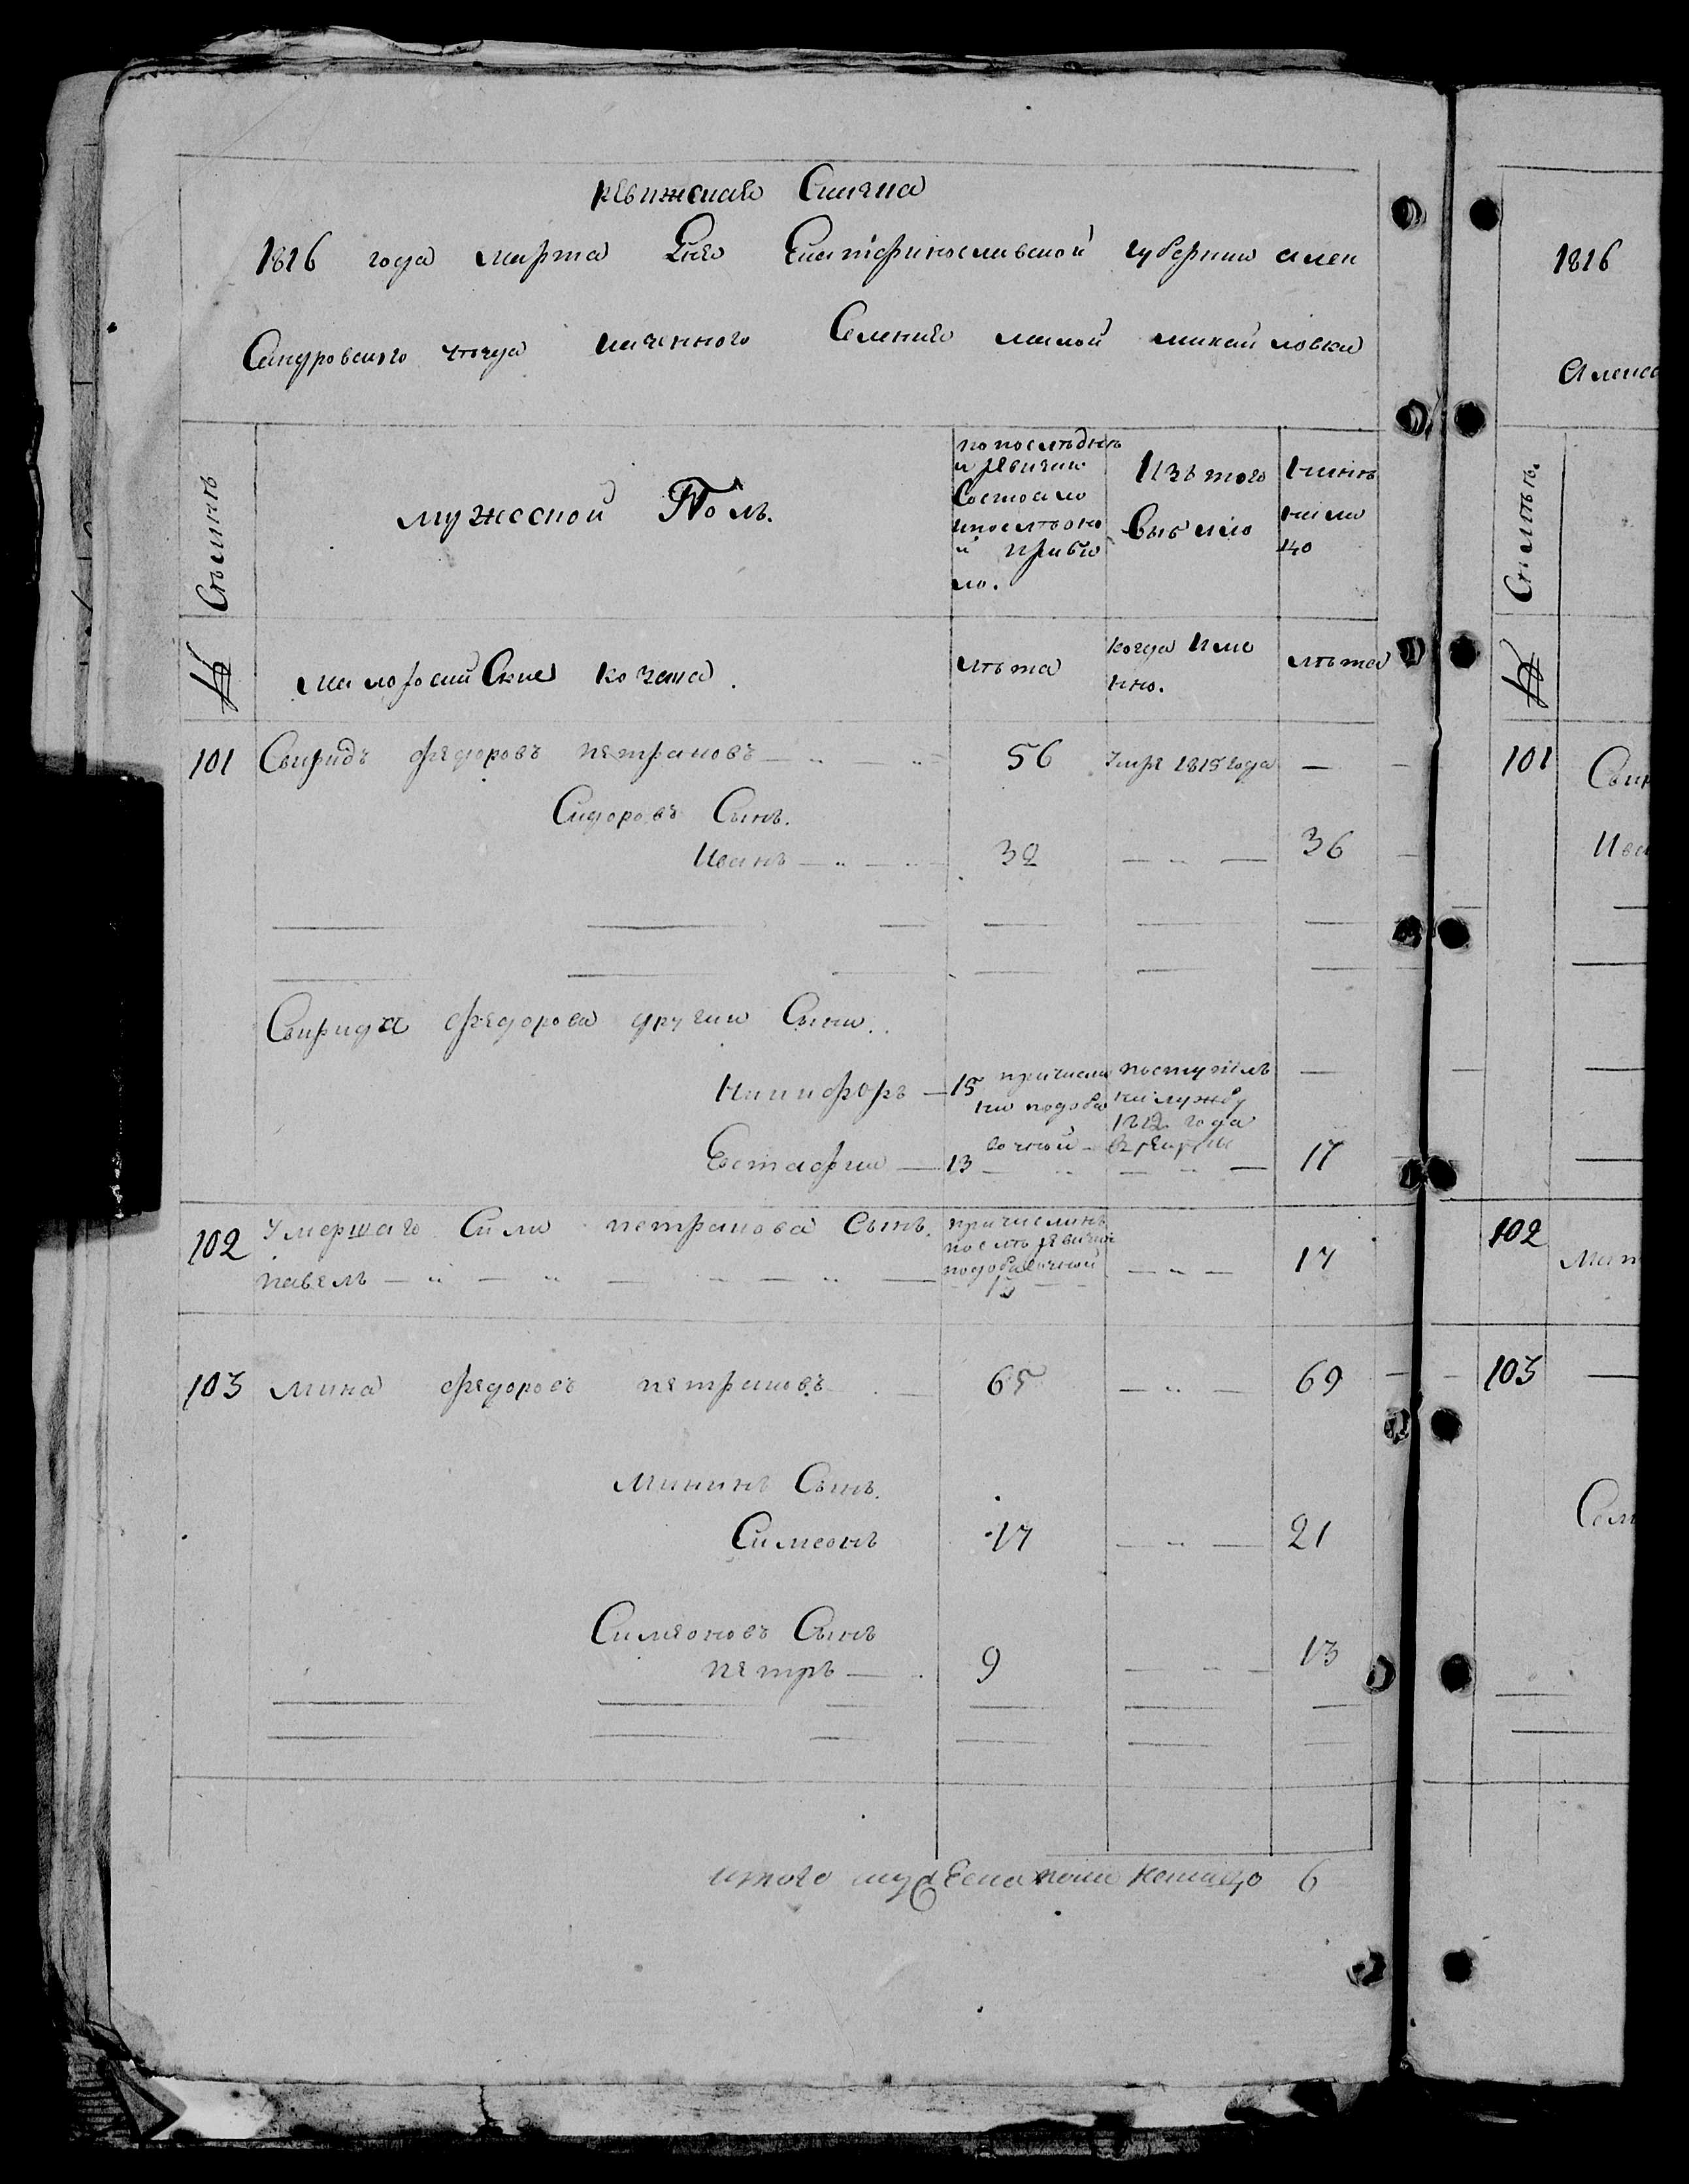 ревижская Скаска
1816 года марта дня Екатеринославской губернии алек
Сандровского уезда казенного Селения малой михайловки
Семьи
мужеской Полъ.
по последне
й ревизии
Состояло
и после оно
й прибы
ло.
Изъ того
Выбыло
Ныне
на ли
цо
№
малоросийские козаки.
лета
когда имя
нно.
лета
101 Свиридъ федоровъ петраковъ 56 Умре 1815 года —
Сидоровъ Сынъ.
Иванъ 32 — 36
Свирида федорова другии Сыни.
Никифоръ — 15 причисле поступилъ —
ни подоба на службу
1812 года
вочной
Естафии — 13 — 17
102 Умершаго Сили петракова Сынъ. причислинъ
после ревизии
павелъ подобавочной 17
13
103 мина федоровъ петраковъ 65 — 69
Мининъ Сынъ.
Симеонъ 17 — 21
Симеоновъ Сынъ
петръ 9 — 13
итого мужеска пола налицо 6
1816
Алекса
Семьи.
№
101 Свир
Ива
102
Мат
103
Сем